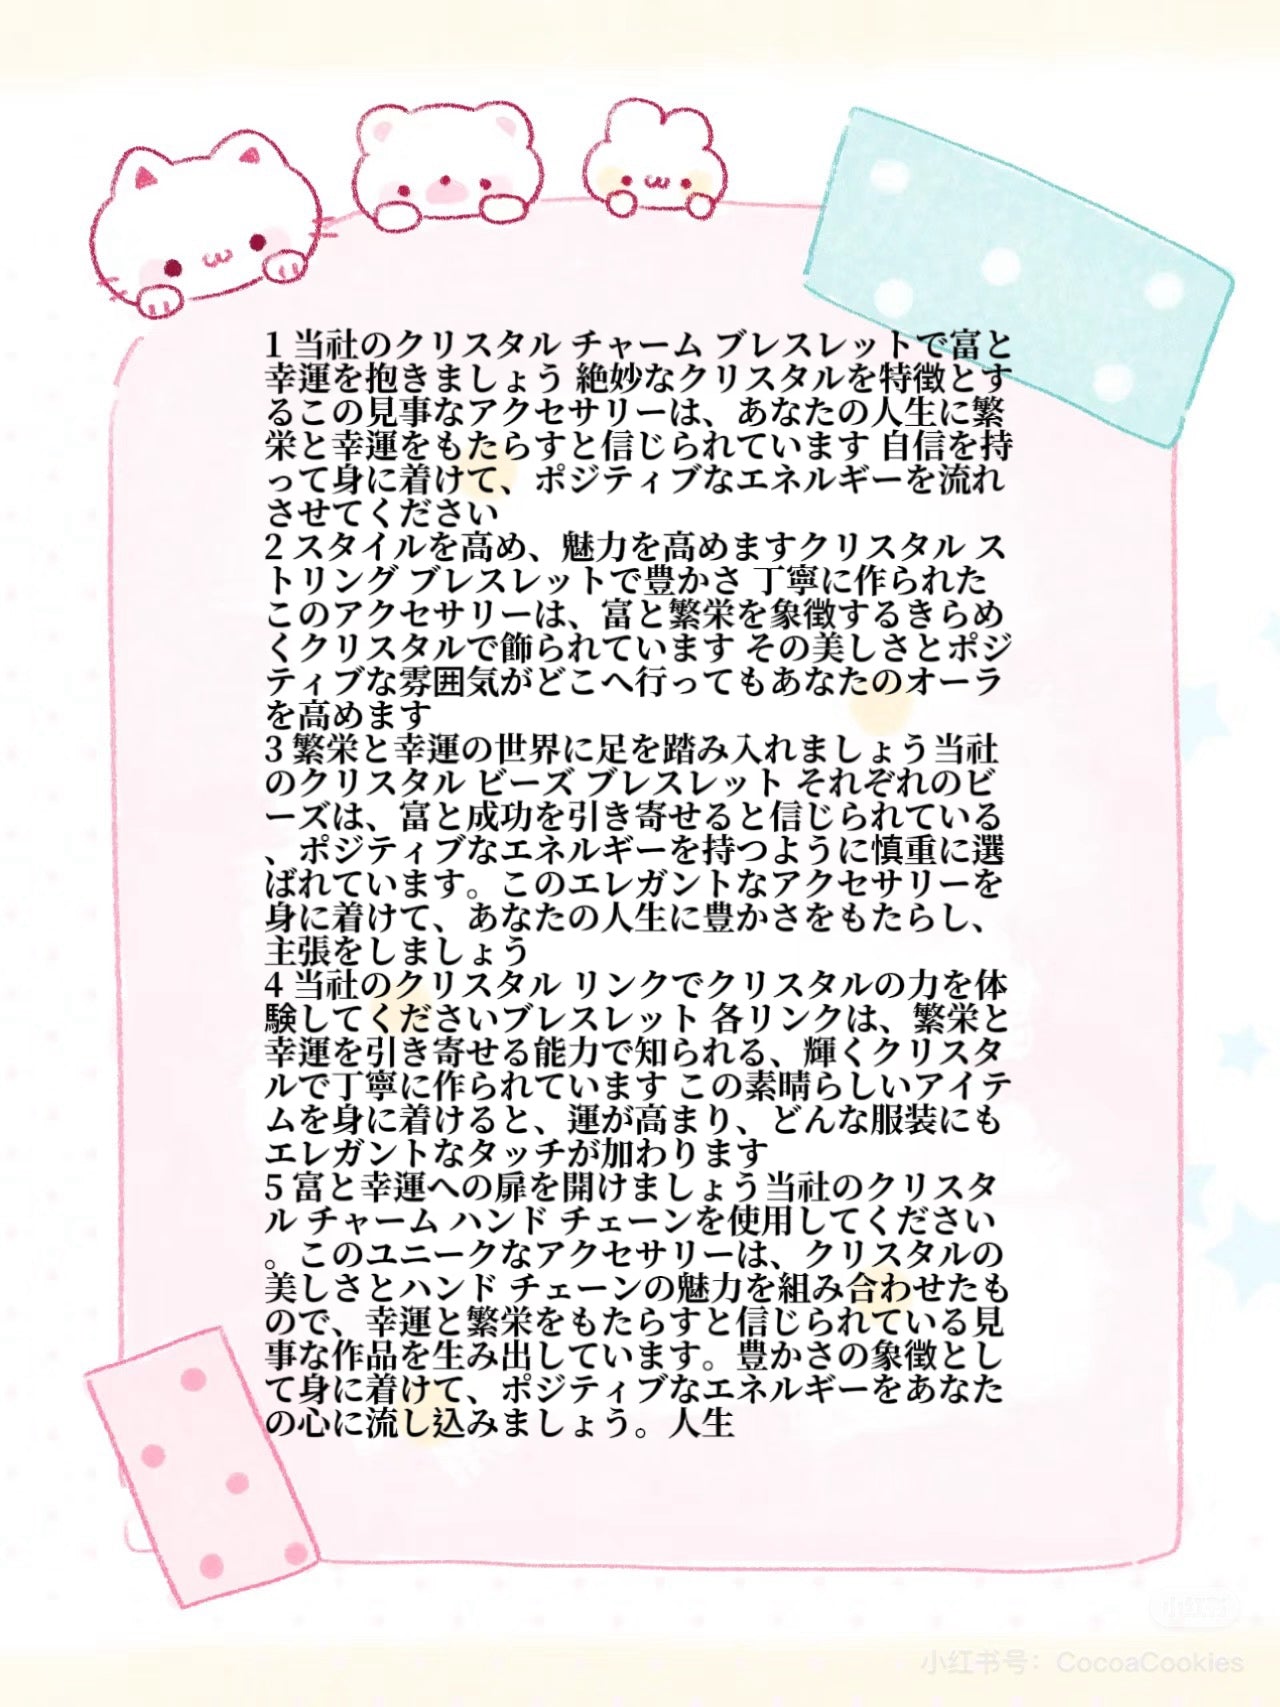 1 当社のクリスタル チャーム ブレスレットで富と
幸運を抱きましょう 絶妙なクリスタルを特徴とす
るこの見事なアクセサリーは、あなたの人生に繁
栄と幸運をもたらすと信じられています 自信を持
って身に着けて、ポジティブなエネルギーを流れ
させてください
2 スタイルを高め、魅力を高めますクリスタル ス
トリング ブレスレットで豊かさ 丁寧に作られた
このアクセサリーは、富と繁栄を象徴するきらめ
くクリスタルで飾られています その美しさとポジ
ティブな雰囲気がどこへ行ってもあなたのオーラ
を高めます
3 繁栄と幸運の世界に足を踏み入れましょう当社
のクリスタル ビーズ ブレスレット それぞれのビ
ーズは、富と成功を引き寄せると信じられている
、ポジティブなエネルギーを持つように慎重に選
ばれています。このエレガントなアクセサリーを
身に着けて、あなたの人生に豊かさをもたらし、
主張をしましょう
4 当社のクリスタル リンクでクリスタルの力を体
験してくださいブレスレット 各リンクは、繁栄と
幸運を引き寄せる能力で知られる、輝くクリスタ
ルで丁寧に作られています この素晴らしいアイテ
ムを身に着けると、運が高まり、どんな服装にも
エレガントなタッチが加わります
5 富と幸運への扉を開けましょう当社のクリスタ
ル チャーム ハンド チェーンを使用してください
。このユニークなアクセサリーは、クリスタルの
美しさとハンド チェーンの魅力を組み合わせたも
ので、幸運と繁栄をもたらすと信じられている見
事な作品を生み出しています。豊かさの象徴とし
て身に着けて、ポジティブなエネルギーをあなた
の心に流し込みましょう。人生
小红书
小红书号：CocoaCookies